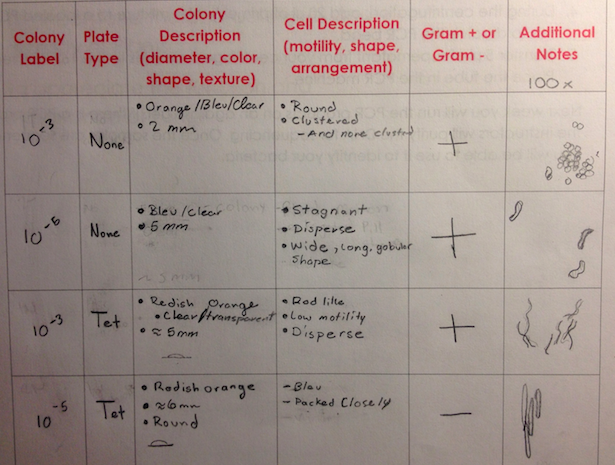 Colony Label
Plate Type
Colony Description (diameter, color, shape, texture)
Cell Description (motility, shape, arrangement)
Gram + or Gram -
Additional Notes
100x
10-3
None
• Orange/Bleu/Clear
• 2 mm
• Round
• Clustered
- And none clusted
+
10-5
None
• Bleu/clear
• 5 mm
• Stagnant
• Disperse
• Wide, long, gobular
shape
+
10-3
Tet
• Redish Orange
• Clear/transparent
• ≈ 5mm
• Rod like
• Low motility
• Disperse
+
10-5
Tet
• Redish orange
• ≈6mm
• Round
- Bleu
- Packed Closely
-